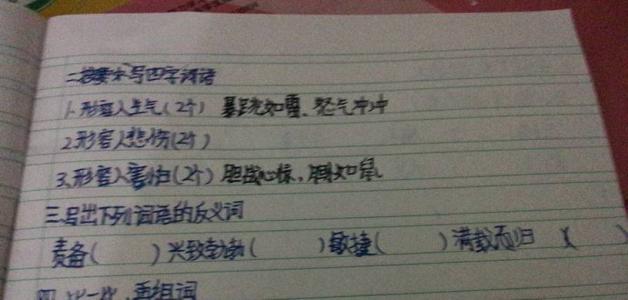 二按要求写四字词语
1.形容人生气(2个) 暴跳如雷、怒气冲冲
2.形容人悲伤(2个)
3.形容人害怕(2个) 胆战心惊,胆小如鼠
三写出下列词语的反义词
责备( )兴致勃勃( )敏捷( )满载而归( )
四 比一比,再组词